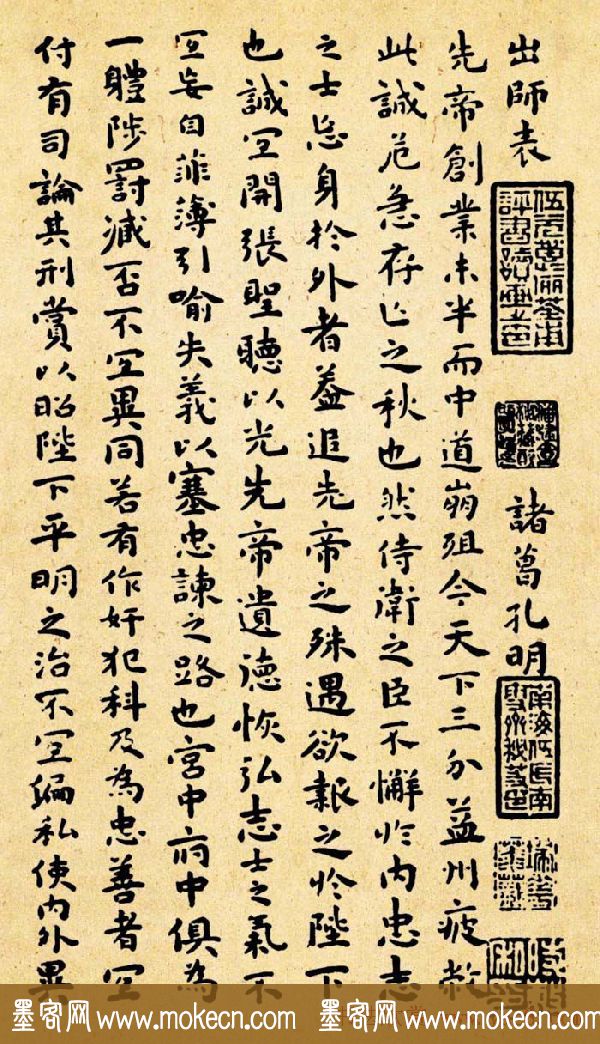 出師表 諸葛孔明
先帝創業未半而中道崩殂今天下三分益州疲敝
此誠危急存亡之秋也然侍衛之臣不懈於內忠志
之士忘身於外者蓋追先帝之殊遇欲報之於陛下
也誠宜開張聖聽以光先帝遺德恢弘志士之氣不
宜妄自菲薄引喻失義以塞忠諫之路也宮中府中俱為
一體陟罰臧否不宜異同若有作奸犯科及為忠善者宜
付有司論其刑賞以昭陛下平明之治不宜偏私使內外異
墨客网 www.mokecn.com 墨客网 www.mokecn.com